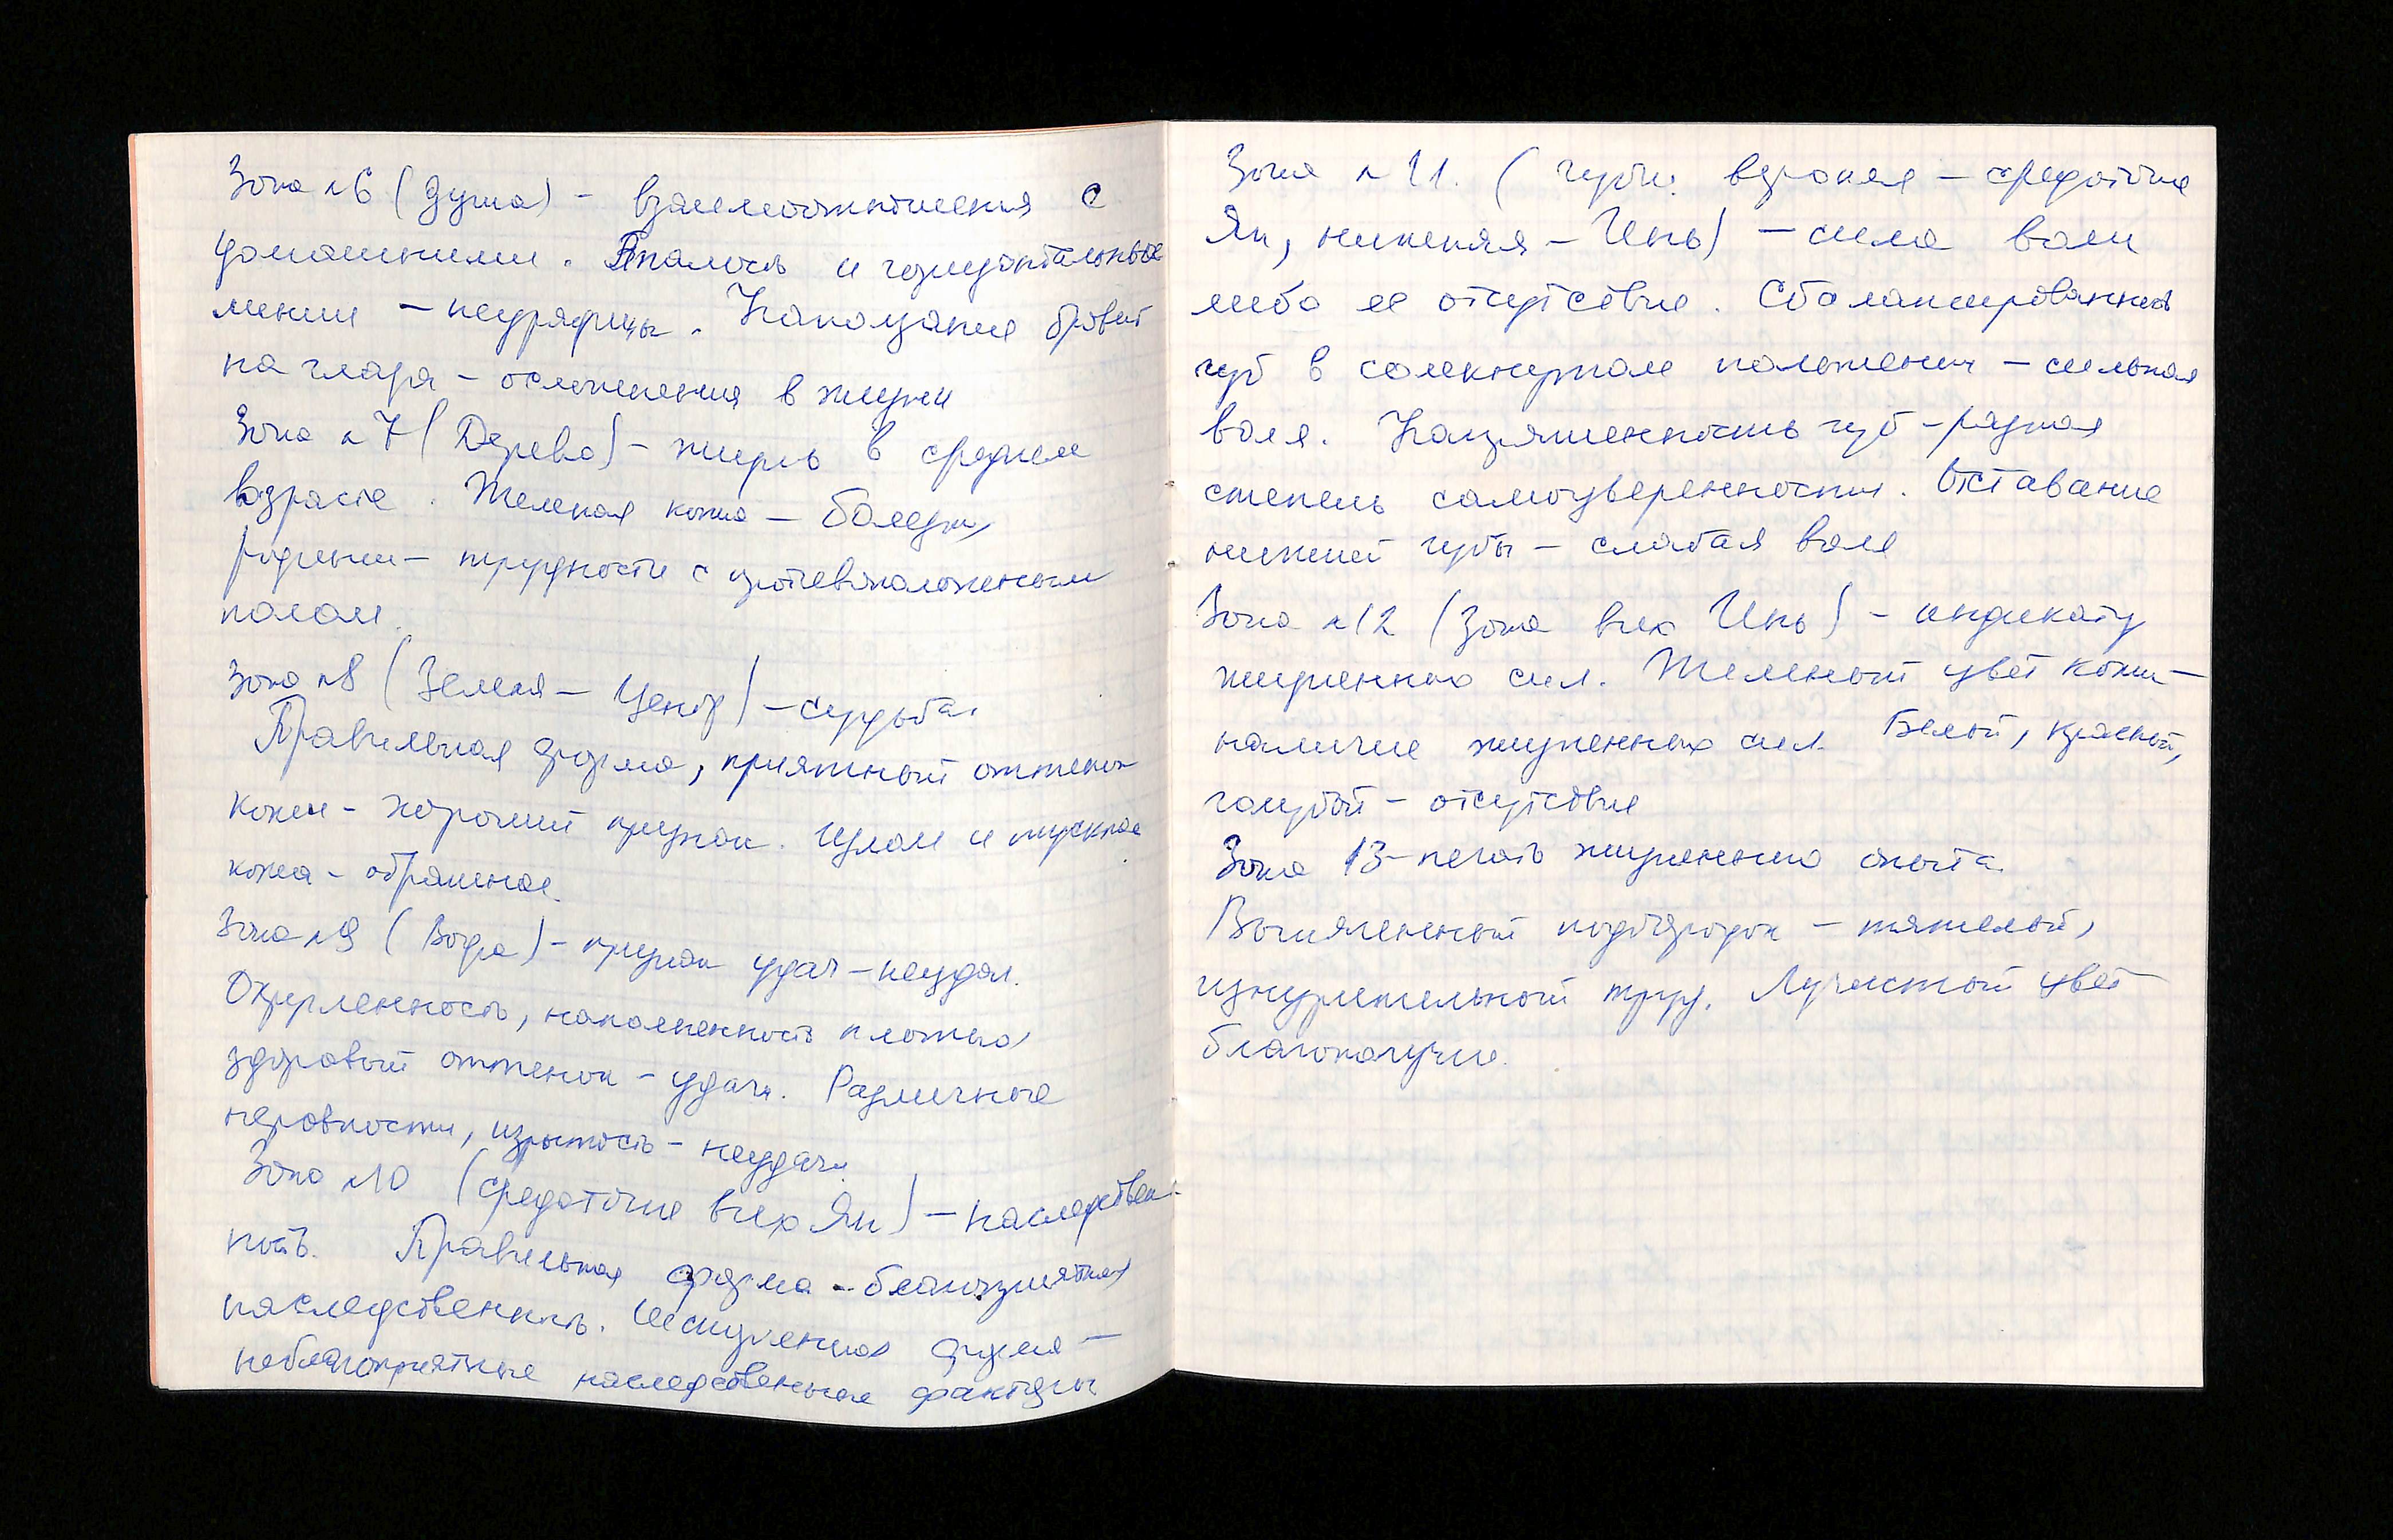 Зона №6 (Душа) - взаимоотношения с
домашними. Впалость и горизонтальные
линии - неурядицы. Наползание бровей
на глаза - осложнения в жизни
Зона №7 (Дерево) - жизнь в среднем
возрасте. Желтая кожа - болезни,
родинки - трудности с противоположным
полом.
Зона №8 (Земля - Центр) - судьба.
Правильная форма, приятный оттенок
кожи - хороший признак. Излом и тусклая
кожа - обратное.
Зона №9 (Вода) - признак удач - неудач.
Округленность, наполненность плотью,
здоровый оттенок - удачи. Различные
неровности, изрытость - неудачи.
Зона №10 (средоточие всех Ян) - наследствен-
ность. Правильная форма - благоприятная
наследственность. Искривленная форма -
неблагоприятные наследственные факторы
Зона №11. (губы: верхняя - средоточие
Ян, нижняя - Инь) - сила воли
либо ее отсутствие. Сбалансированность
губ в сомкнутом положении - сильная
воля. Напряженность губ - разная
степень самоуверенности. Отставание
нижней губы - слабая воля
Зона №12 (Зона всех Инь) - индикатор
жизненных сил. Желтый цвет кожи -
наличие жизненных сил. Белый, красный,
голубой - отсутствие
Зона 13 - печать жизненного опыта.
подбородок - тяжелый,
изнурительный труд. Лучистый цвет
благополучие.